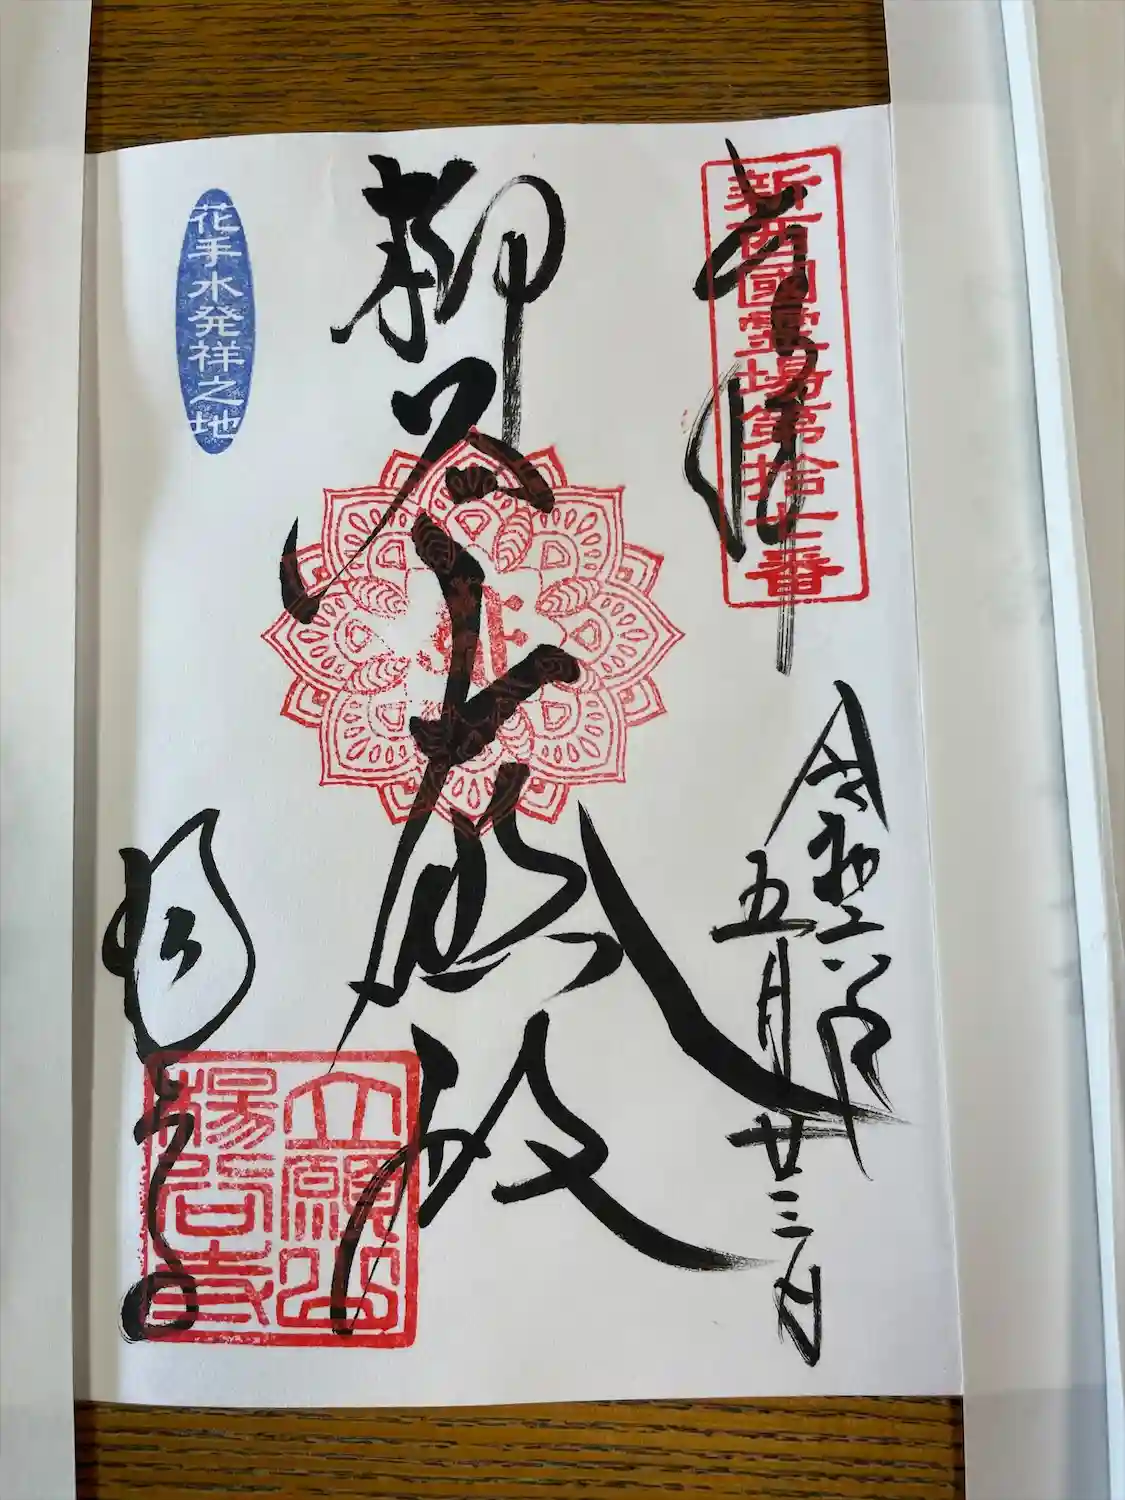 奉拝
新西國霊場第拾七番
令和六年
五月廿三日
柳谷
大悲殿
花手水発祥之地
楊谷寺
立願山
楊谷寺